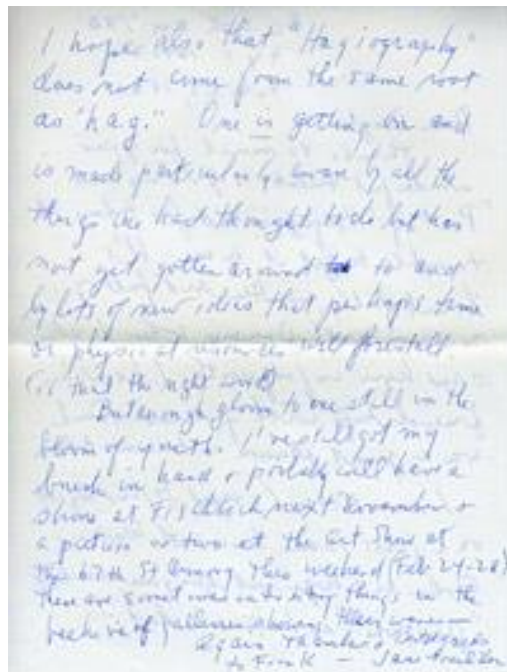 I hope also that "Hagiography"
does not come from the same root
as "hag." One is getting on and
is made particularly aware by all the
things one had thought to do but has
not yet gotten around to and
by lots of new ideas that perhaps time
or physical resources will forestall.
(is that the right word)
But enough gloom to one still in the
bloom of youth. I've still got my
brush in hand & probably will have a
show at Fischbach next November &
a picture or two at the Art Show at
the 67th St Armory this weekend (Feb 24-28)
These are sometimes interesting things in the
of galleries showing their wares—
Again thanks &
to Fink —